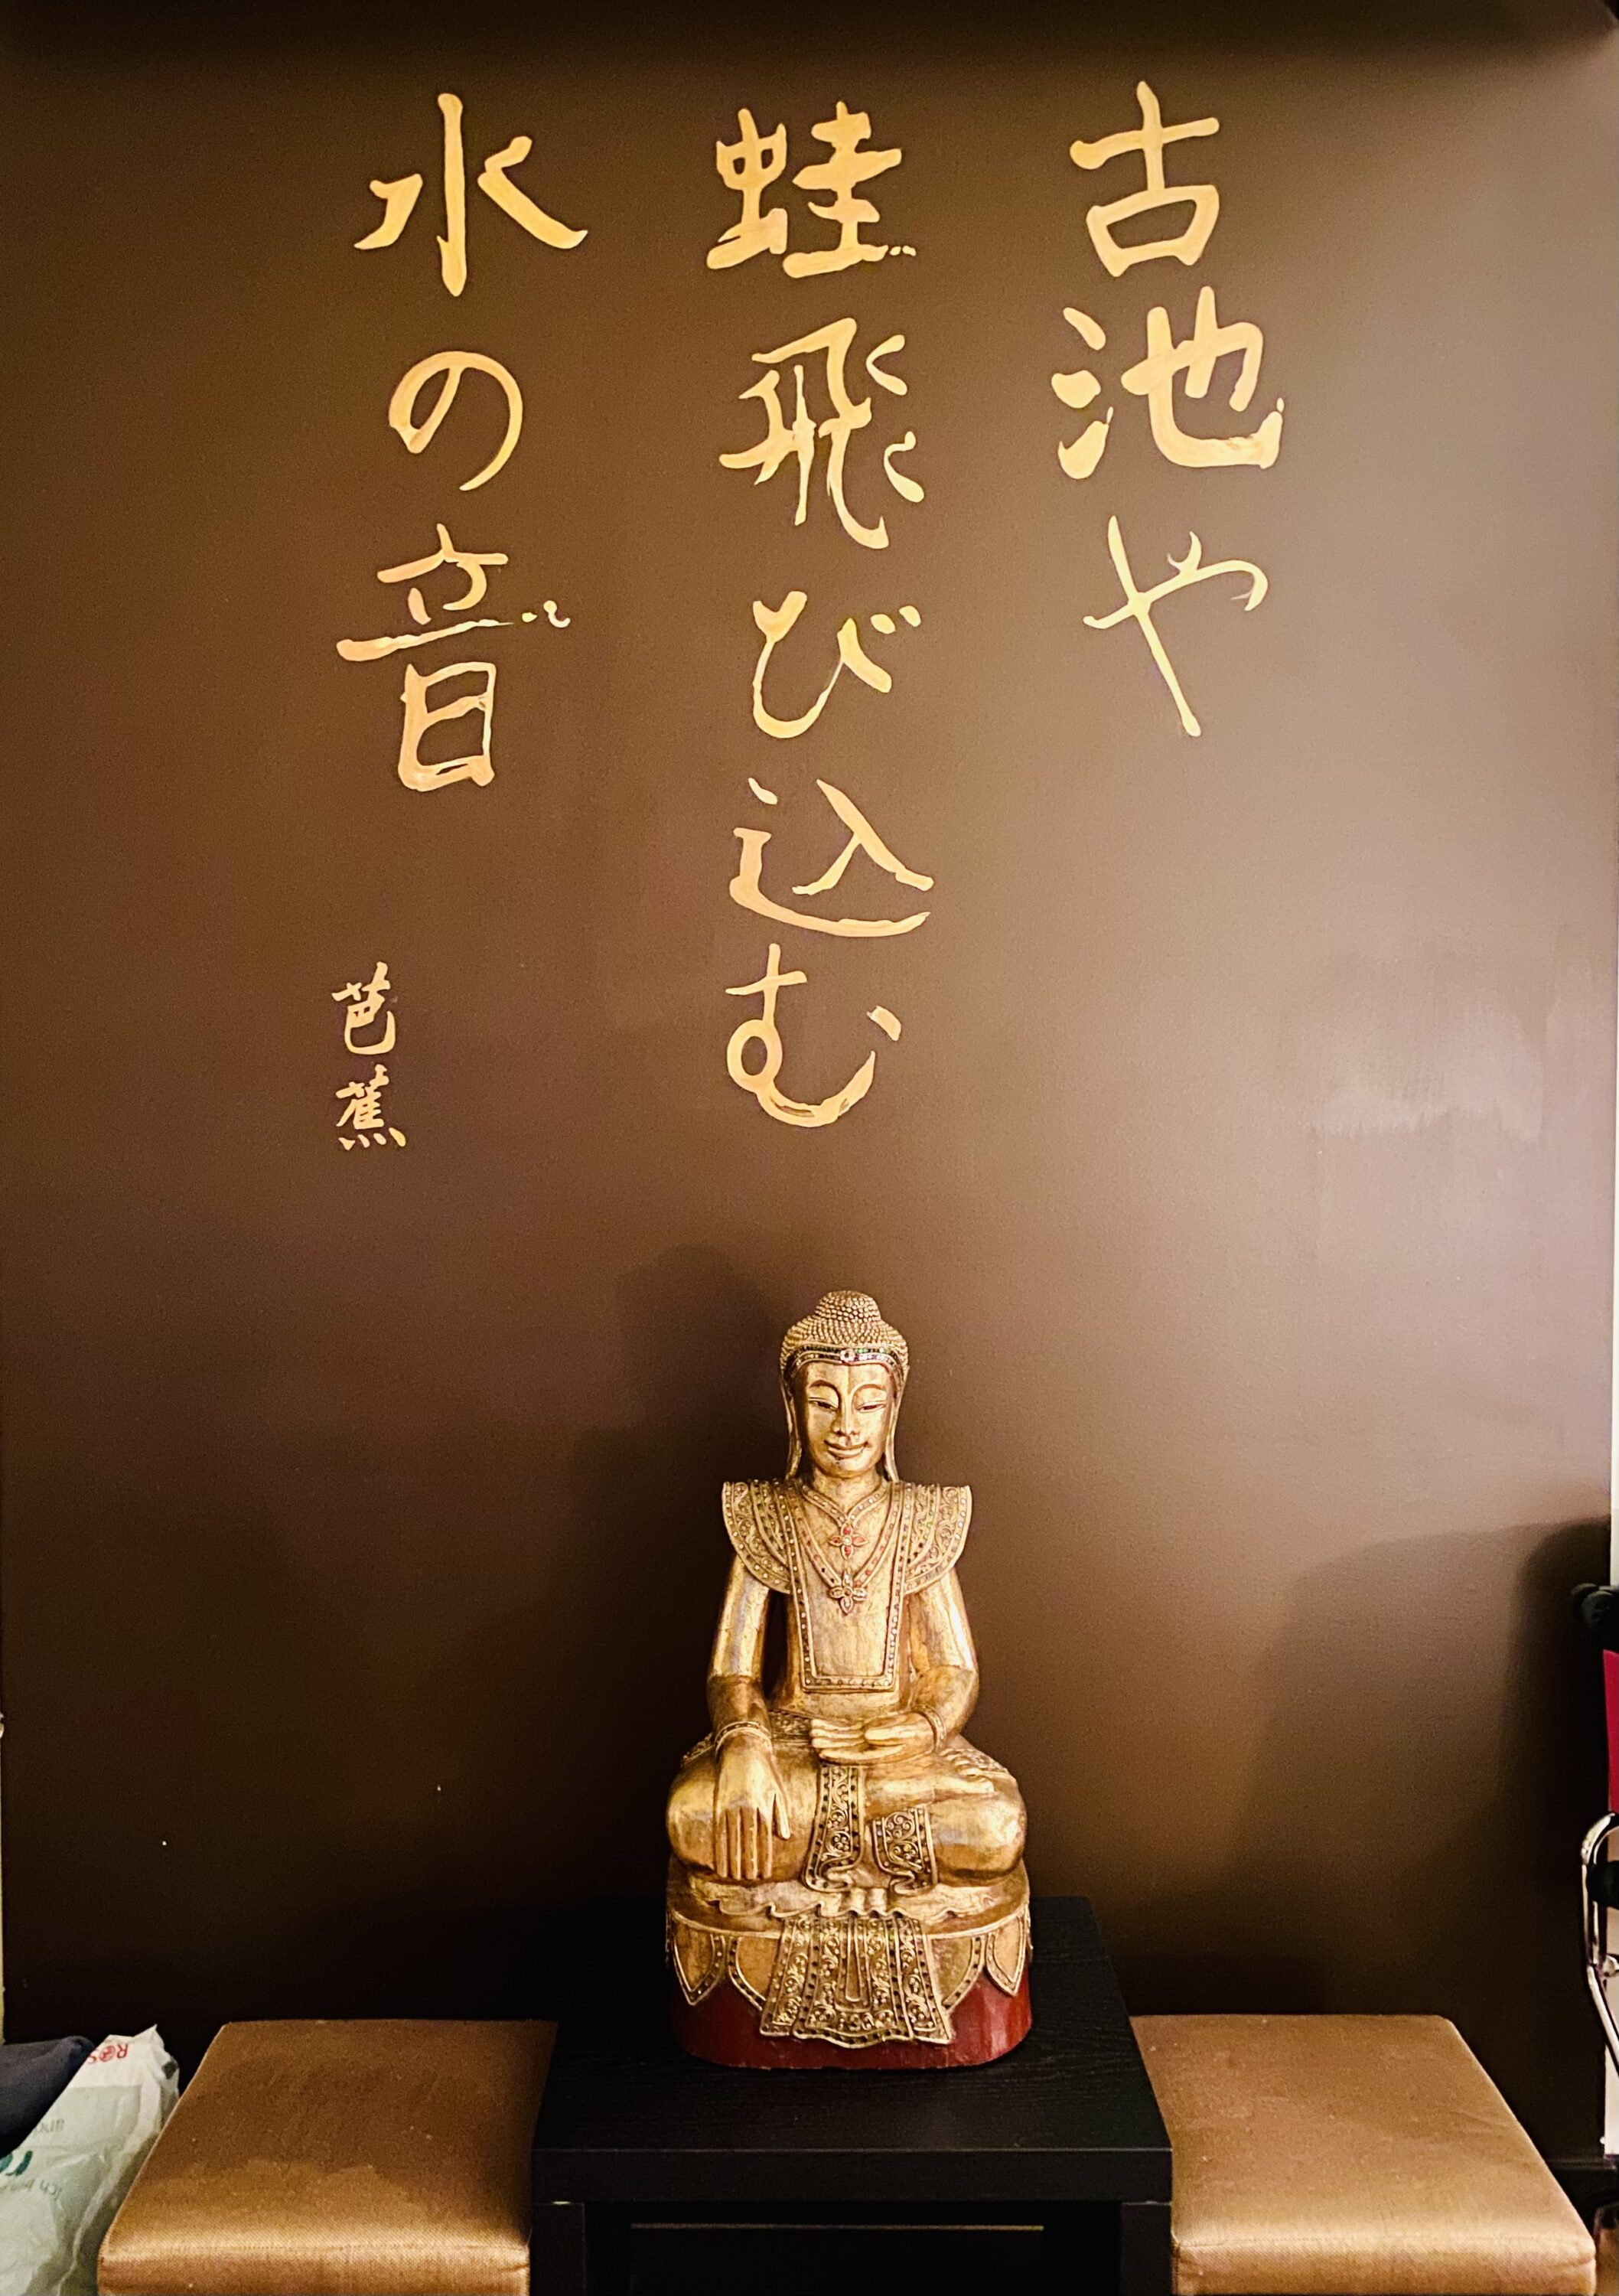 古池や
蛙飛び込む
水の音
芭蕉